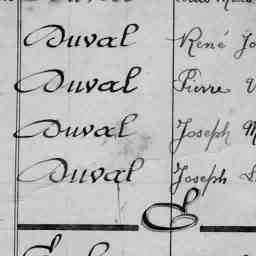 Duval René Jo
Duval Pierre V
Duval Joseph M
Duval Joseph
E